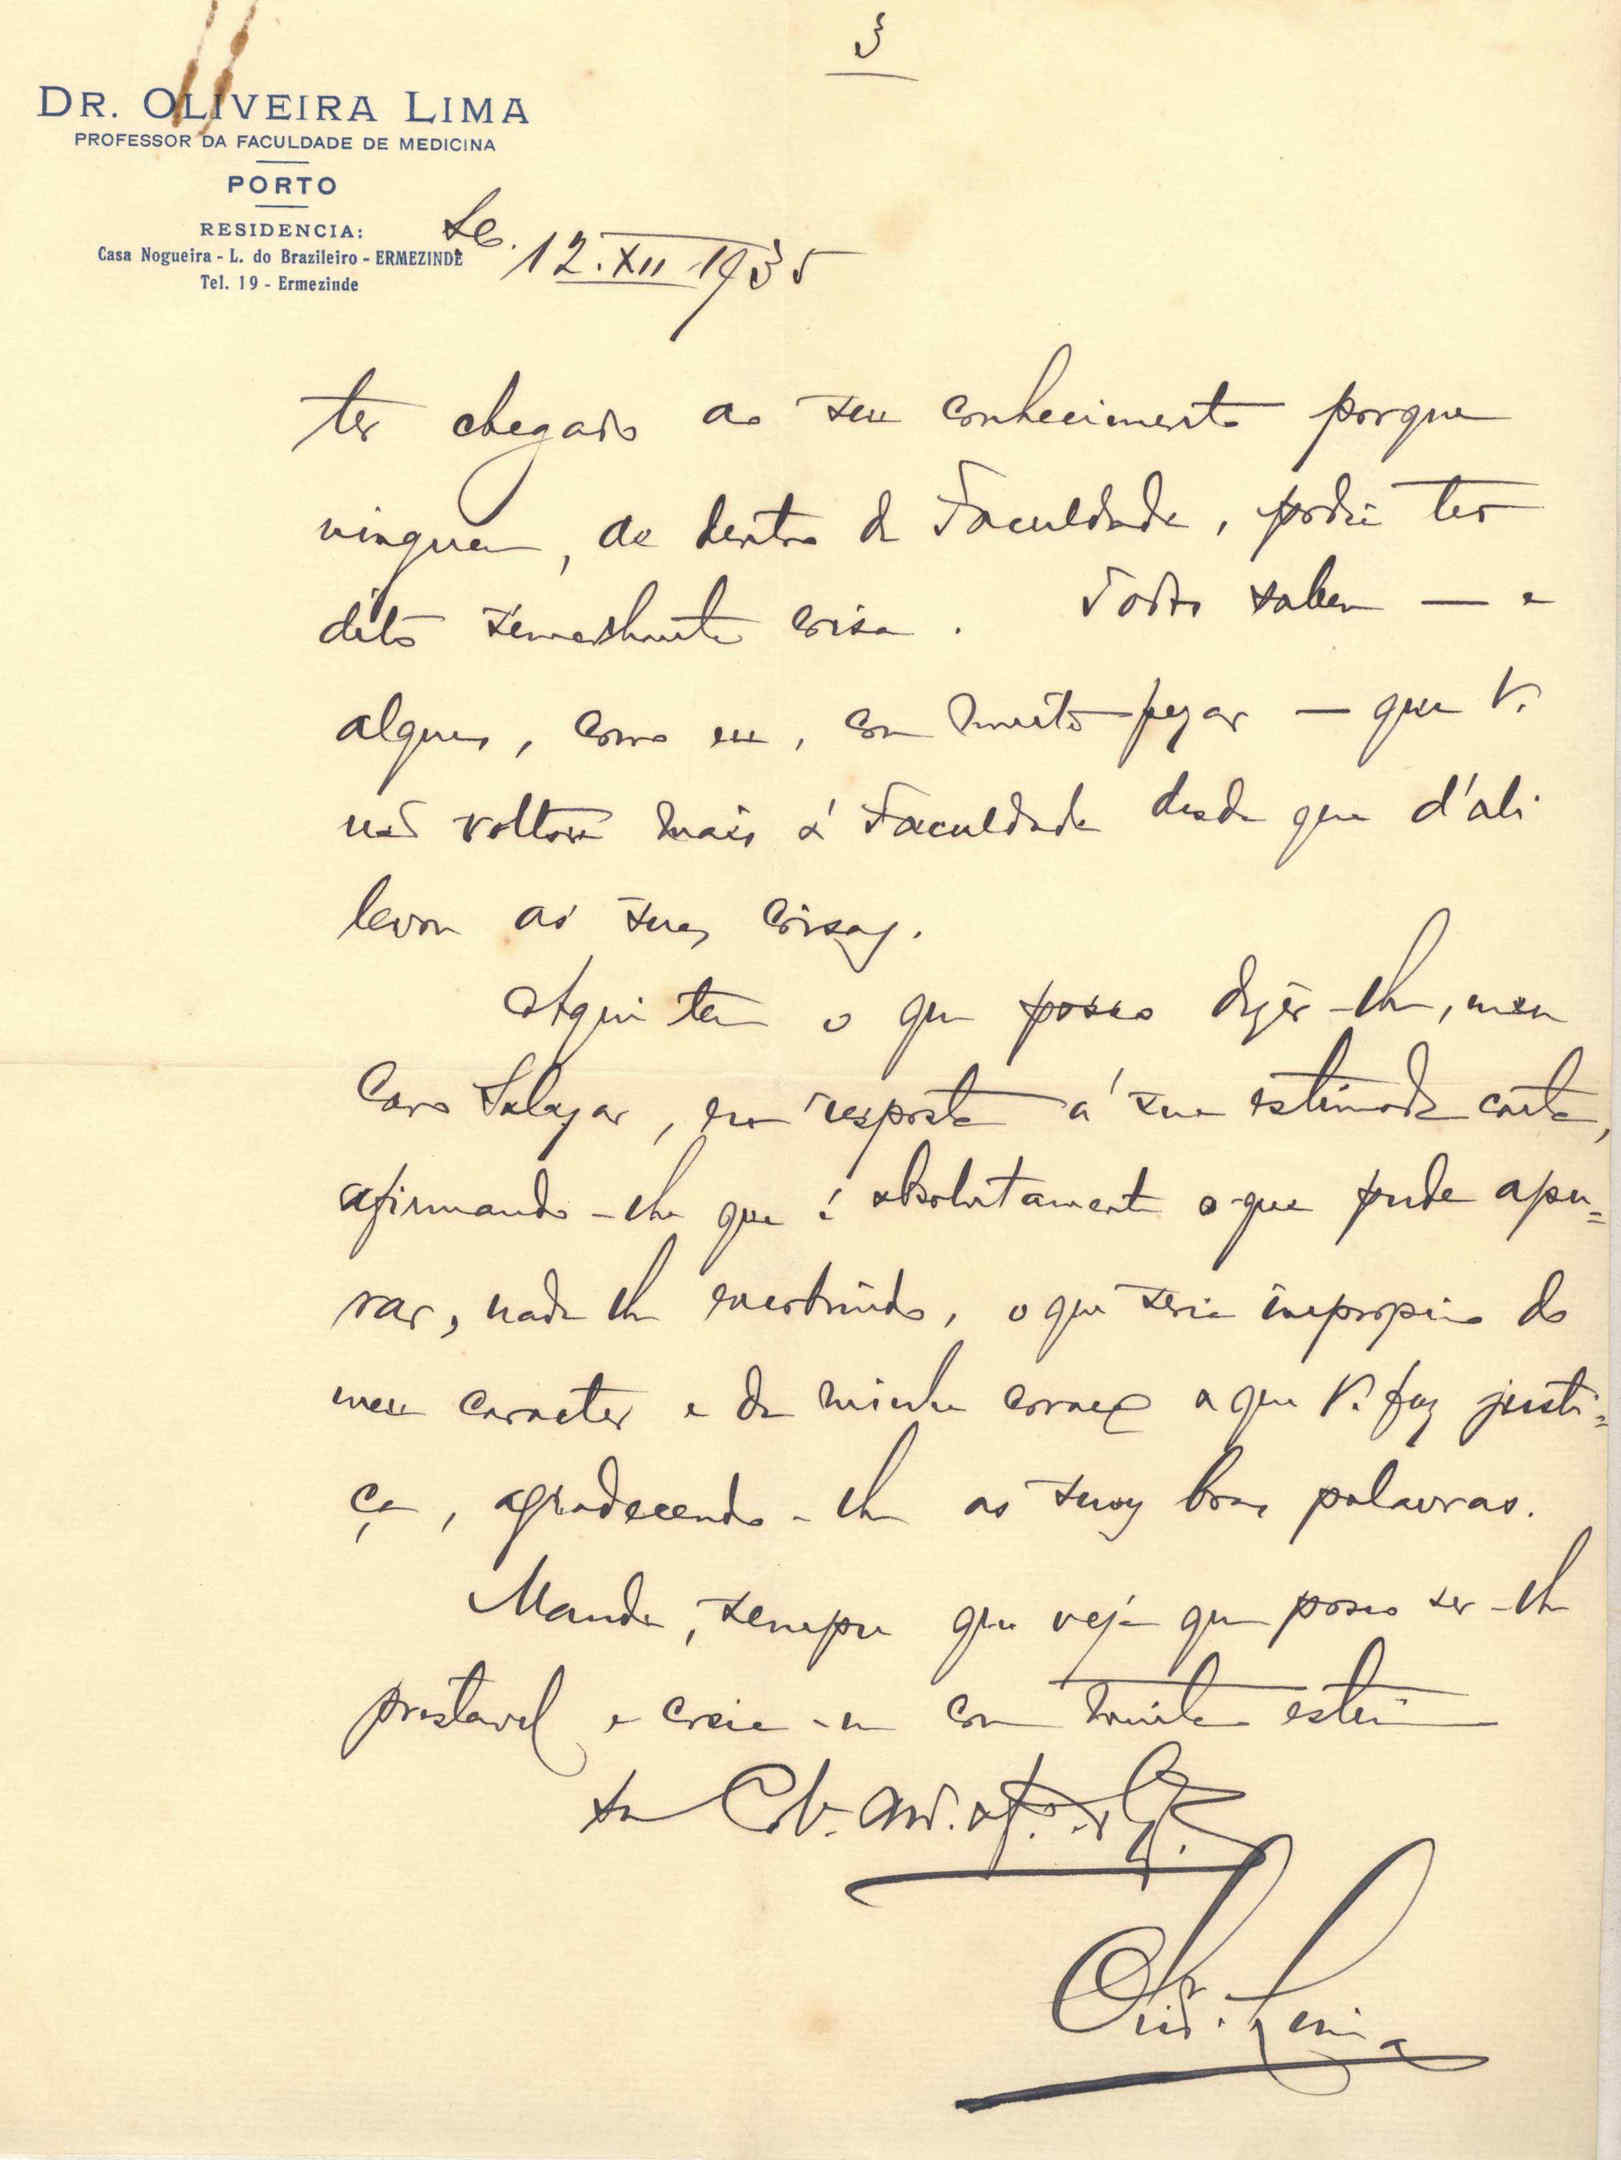 3
DR. OLIVEIRA LIMA
PROFESSOR DA FACULDADE DE MEDICINA
PORTO
RESIDENCIA:
Casa Nogueira - L. do Brazileiro - ERMEZINDE
Tel. 19 - Ermezinde
12.XII.1935
ter chegado ao seu conhecimento porque
ninguem, de dentro da Faculdade, podia ter
dito semelhante coisa. Todos sabem — e
alguns, como eu, com muito pezar — que V.
não voltou mais á Faculdade desde que d'ali
levou as suas coisas.
Aqui tem o que posso dizêr-lhe, meu
Caro Salazar, em resposta á sua estimada carta,
afirmando-lhe que é absolutamente o que pude apu=
rar, nada lhe encobrindo, o que seria improprio do
meu caracter e da minha a que V. faz justi=
ça, agradecendo-lhe as suas boas palavras.
Mande, sempre que veja que posso ser-lhe
prestavel e creia-me com muita estima
Oliv. Lima